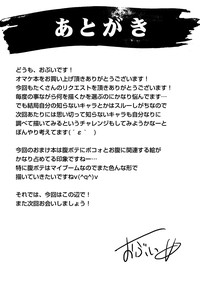 あとがき
どうも、おぶいです！
オマケ本をお買い上げ頂きありがとうございます！
今回もたくさんのリクエストを頂きありがとうございます！
毎度の事ながら何を描くかを選ぶのにかなり悩んでます…
でも結局自分の知らないキャラとかはスルーしがちなので
次回あたりには思い切って知らないキャラも自分なりに
調べて描いてみるというチャレンジもしてみようかなーと
ぼんやり考えてます(´ε｀ )
今回のおまけ本は腹ボテにボコォとかお腹に関連する絵が
かなり占めてる印象ですねー…
特に腹ボテはマイブームなのでまた色んな形で
描いていきたいですねv(^q^)v
それでは、今回はこの辺で！
また次回お会いしましょう！
おぶい